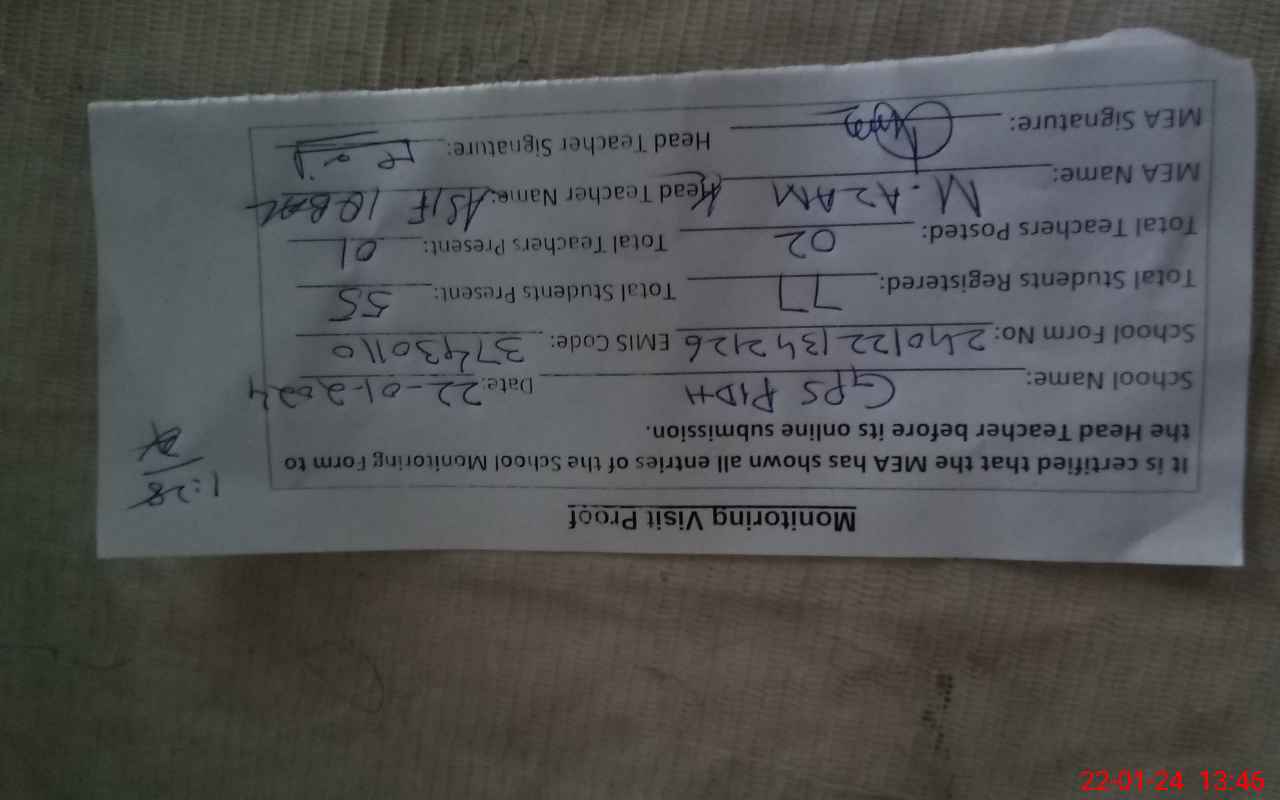 Monitoring Visit Proof
It is certified that the MEA has shown all entries of the School Monitoring Form to
the Head Teacher before its online submission.
1:28
School Name: GPS PIDH Date: 22-01-2024
School Form No: 2401221342126 EMIS Code: 37430110
Total Students Registered: 77 Total Students Present: 55
Total Teachers Posted: 02 Total Teachers Present: 01
MEA Name: M. AZAM Head Teacher Name: ASIF IQBAL
MEA Signature: Head Teacher Signature:
22-01-24 13:46